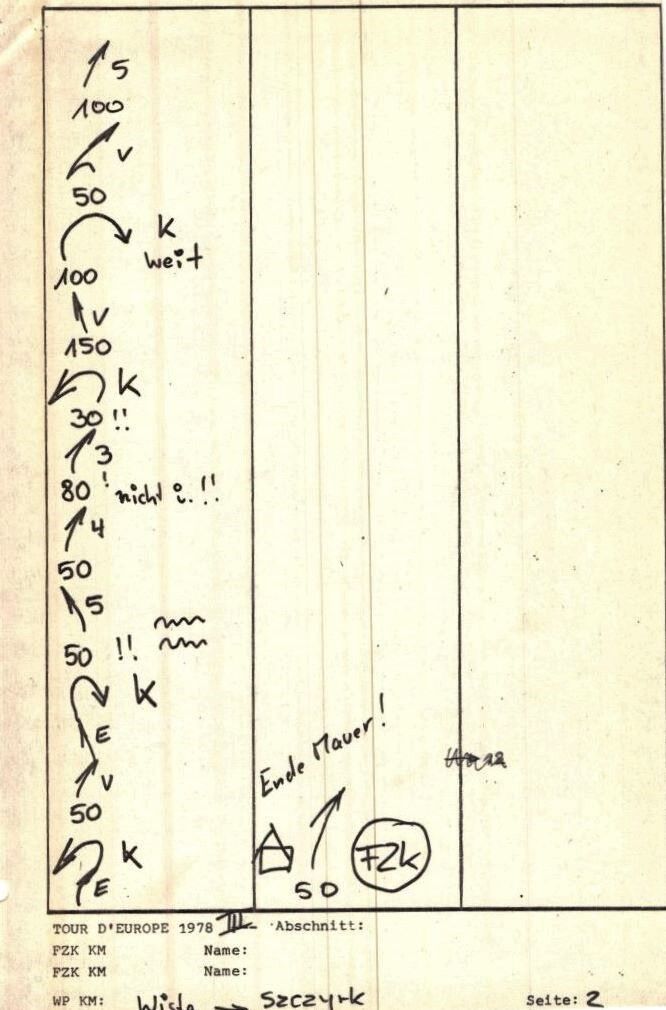 5
100
V
50
K
weit
100
V
150
K
30 !!
3
80 ! nicht i. !!
4
50
5
50 !!
K
E
V
50
K
E
Ende Mauer!
50
FZK
TOUR D'EUROPE 1978 III Abschnitt:
FZK KM Name:
FZK KM Name:
WP KM: Wisła → Szczyrk Seite: 2